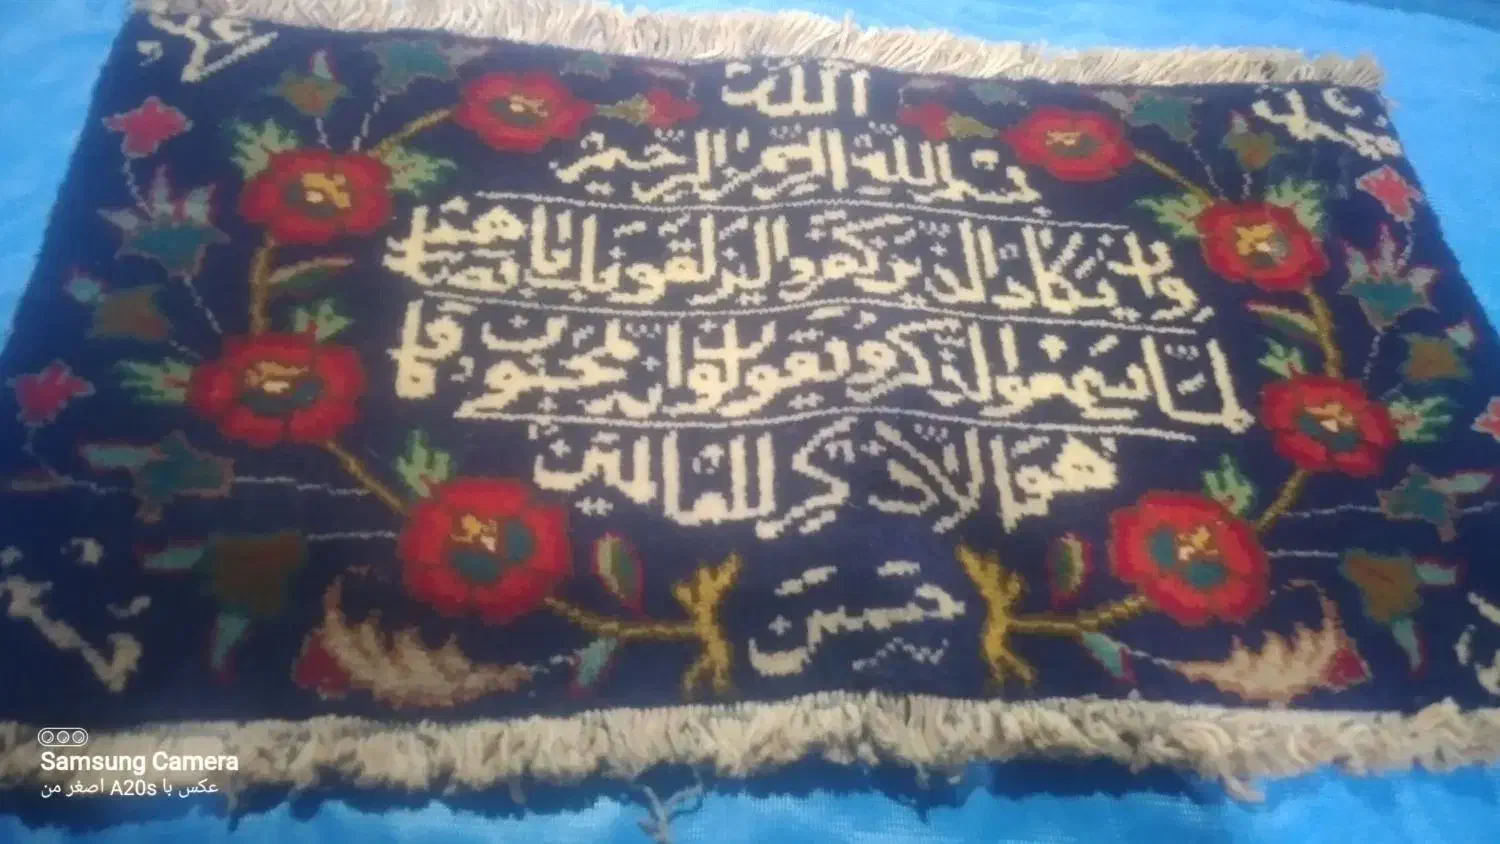 الله
بسم الله الرحمن الرحيم
وان يكاد الذين كفروا ليزلقونك بابصارهم
لما سمعوا الذكر ويقولون انه لمجنون وما
هو الا ذكر للعالمين
حسين
Samsung Camera
عکس با A20s اصغر من